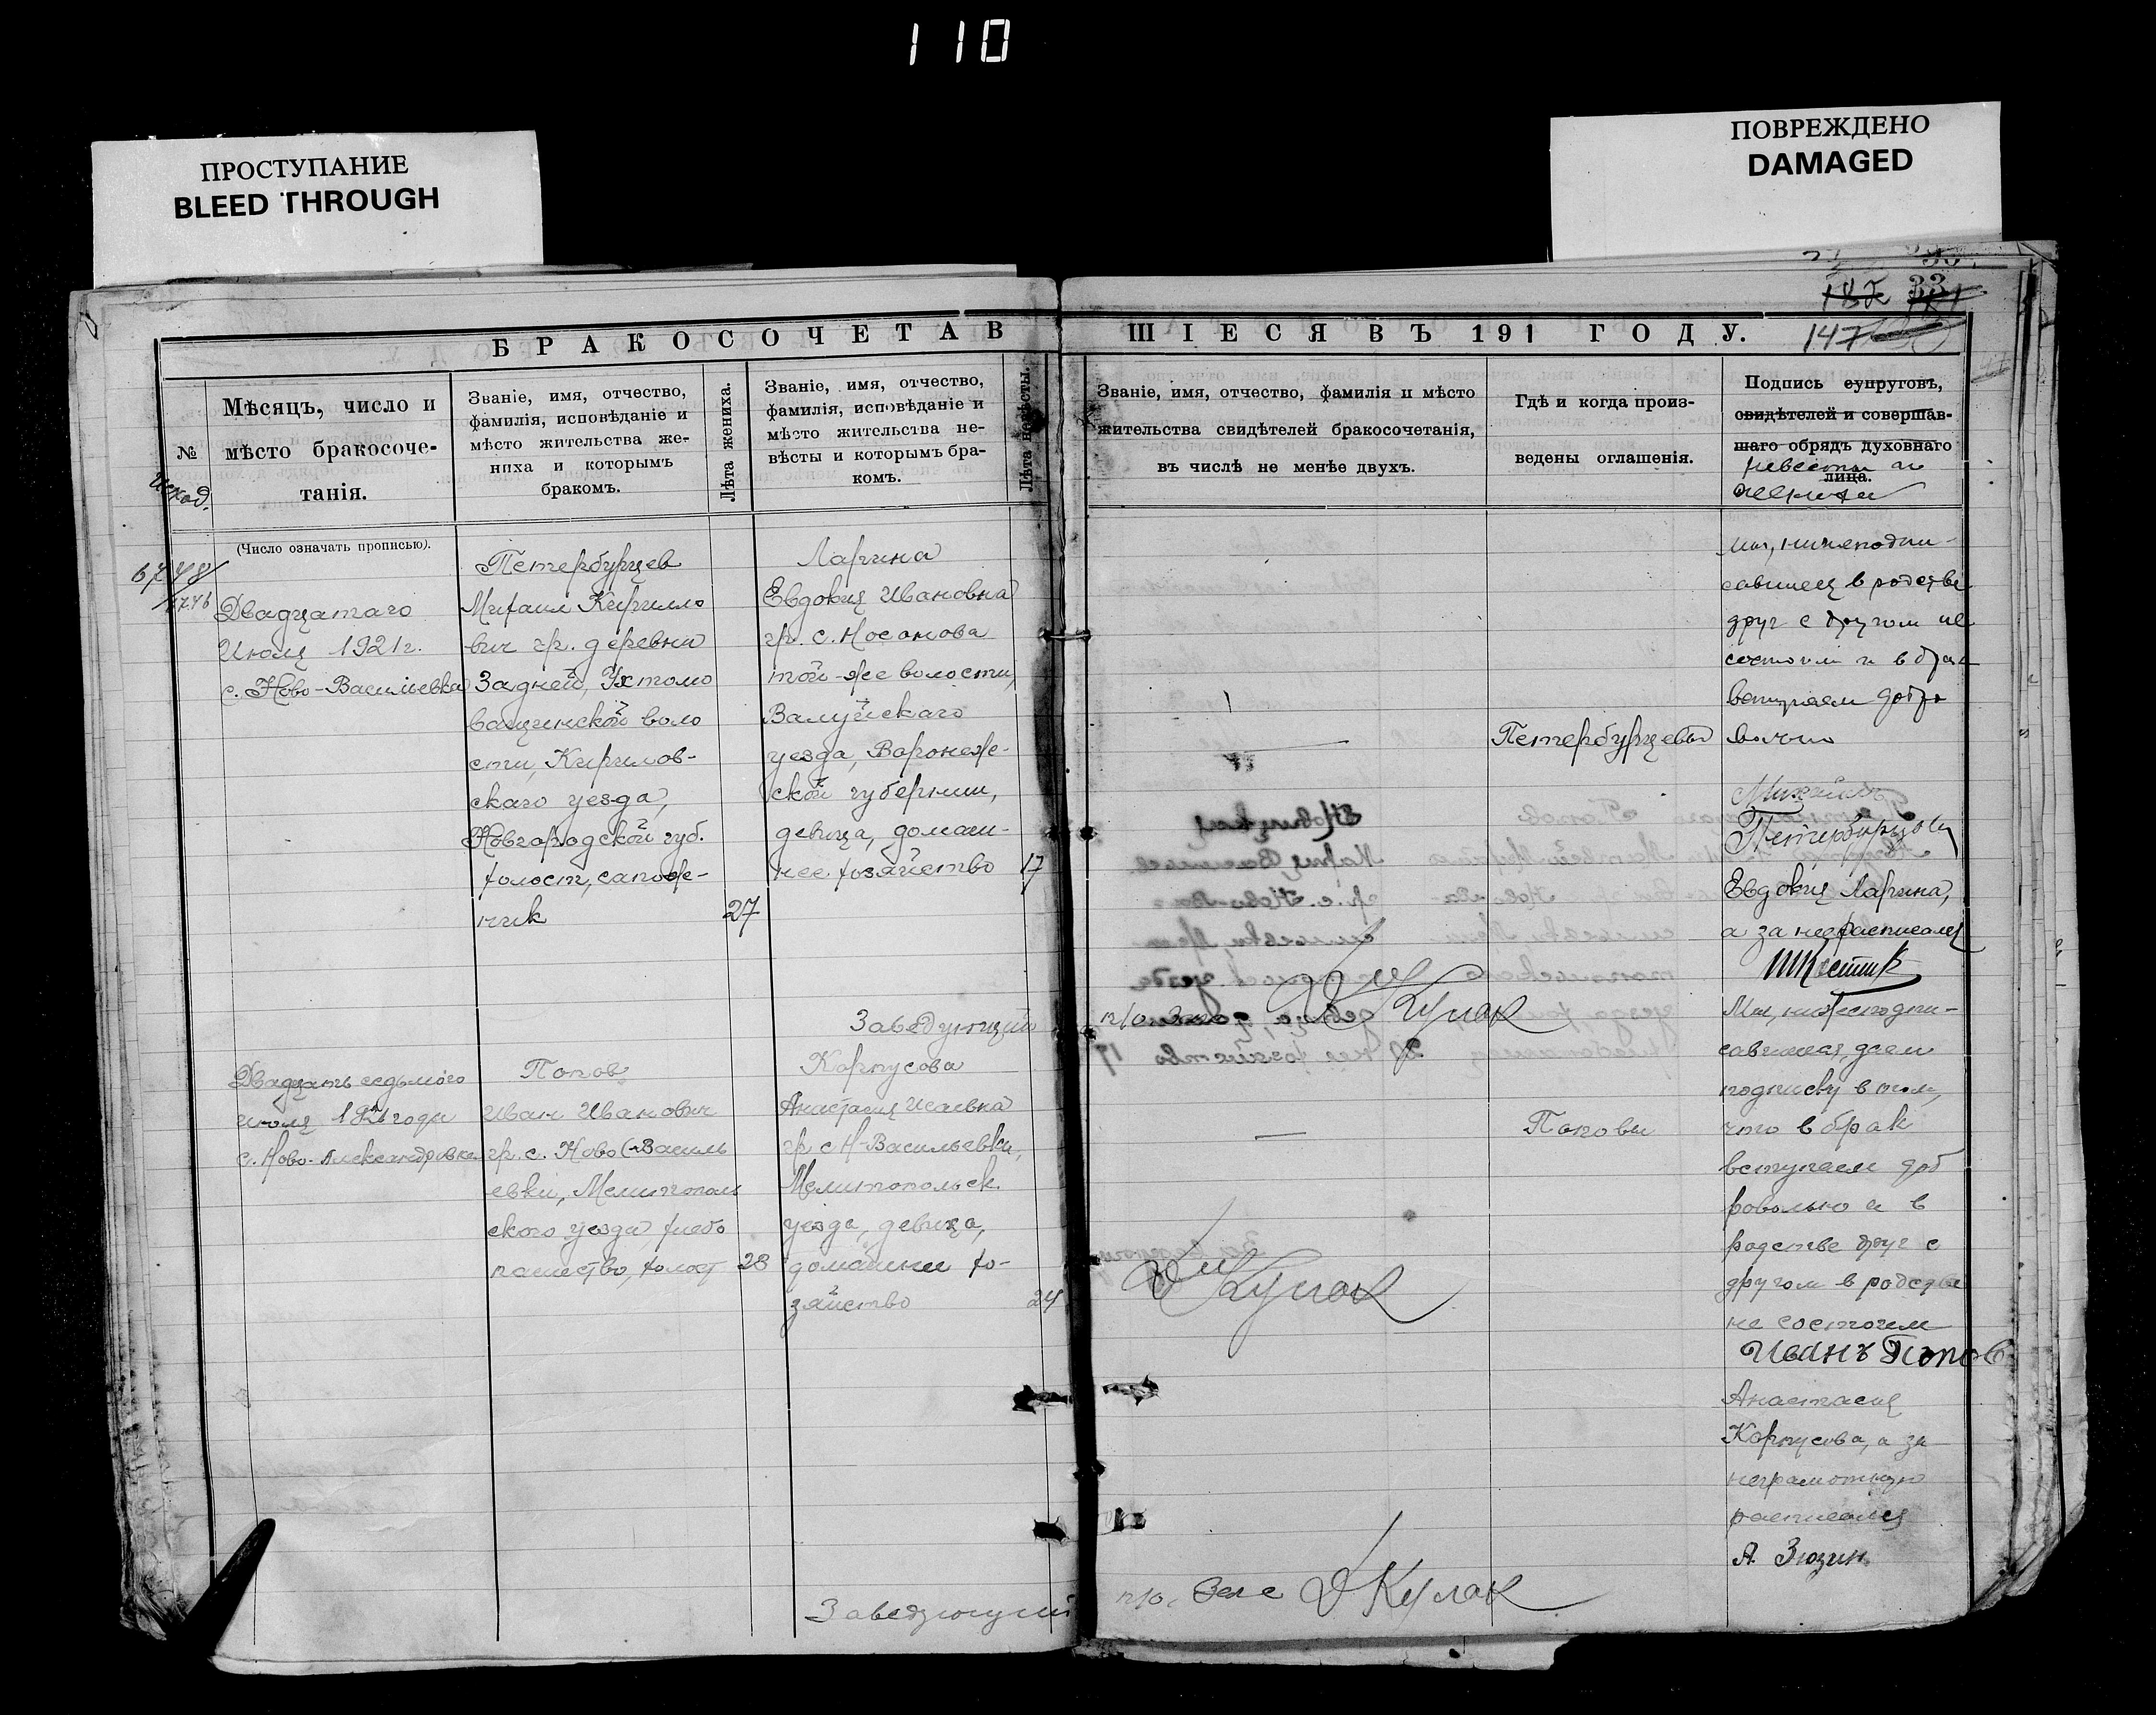 110
ПРОСТУПАНИЕ
BLEED THROUGH
ПОВРЕЖДЕНО
DAMAGED
33
147
БРАКОСОЧЕТАВ
ШІЕСЯ ВЪ 191 ГОДУ.
№
исход.
Мѣсяцъ, число и
мѣсто бракосоче-
танія.
Званіе, имя, отчество,
фамилія, исповѣданіе и
мѣсто жительства же-
ниха и которымъ
бракомъ.
Лѣта жениха.
Званіе, имя, отчество,
фамилія, исповѣданіе и
мѣсто жительства не-
вѣсты и которымъ бра-
комъ.
Лѣта невѣсты.
Званіе, имя, отчество, фамилія и мѣсто
жительства свидѣтелей бракосочетанія,
въ числѣ не менѣе двухъ.
Гдѣ и когда произ-
ведены оглашенія.
Подпись супруговъ,
свидѣтелей и совершав-
шаго обрядъ духовнаго
лица.
невесты и
жениха
(Число означать прописью).
Двадцатаго
Июля 1921г.
с. Ново-Василиевка
Петербурцев
Михаил Кирилло
вич гр. деревни
Задней, Ухтомо
вашинской воло
сти, Кирилов-
скаго уезда,
Новгородской губ.
холост, сапож-
ник
27
Ларина
Евдокия Ивановна
гр. с. Носонова
той-же волости,
Валуйскаго
уезда, Воронеж-
ской губернии,
девица, домаш-
нее хозяйство
17
Петербурцевы
мы, нижеподпи-
савшиеся в родстве
друг с другом не
состоим и в брак
вступаем добро
вольно
Михаилъ
Петербурцовъ
Евдокия Ларина,
а за нея расписался
Шкестик
Заведующий
п/о. Загс Кулак
Двадцать седьмого
июля 1921 года
с. Ново-Александровка
Попов
Иван Иванович
гр. с. Ново-Василь
евки, Мелитополь
ского уезда, хлебо
пашество, холост
28
Корпусова
Анастасия Исаевна
гр. с Н-Васильевки,
Мелитопольск.
уезда, девица,
домашнее хо-
зяйство
24
Поповы
Кулак
Мы, нижеподпи-
савшиеся, даем
подписку в том,
что в брак
вступаем доб
ровольно и в
родстве друг с
другом в родстве
не состоим
Иванъ Попов
Анастасия
Корпусова, а за
неграмотную
расписался
А. Зюзин.
Заведующий
п/о. Загс Кулак